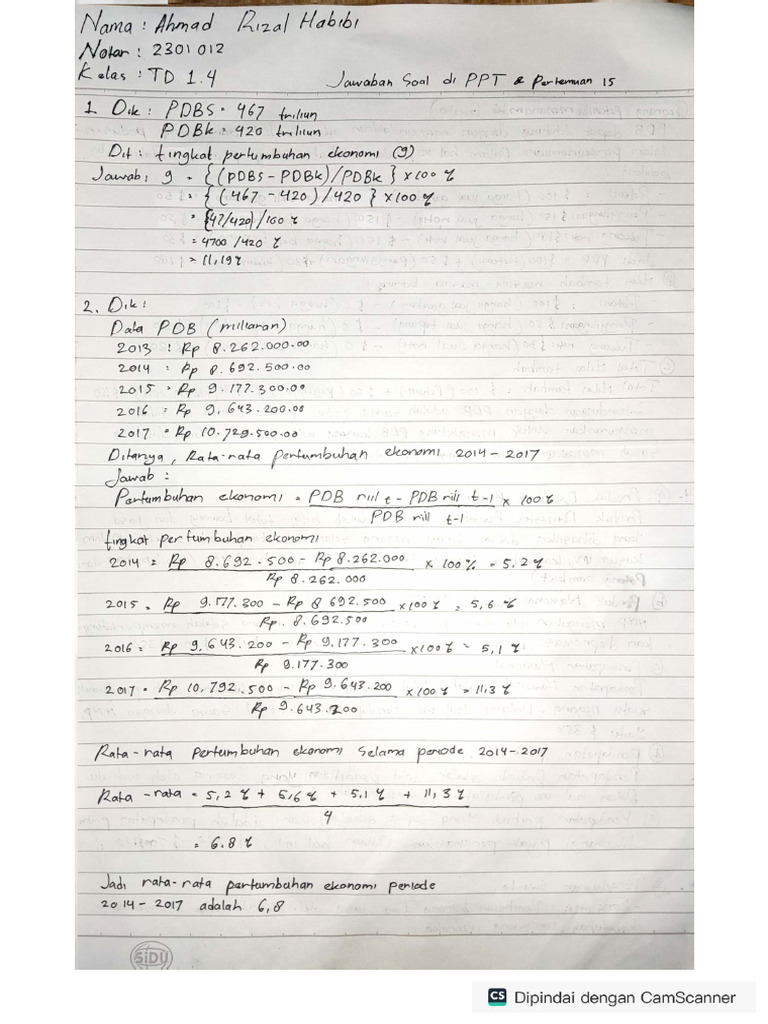 Nama : Ahmad Rizal Habibi
Notar : 2301012
Kelas : TD 1.4
Jawaban Soal di PPT & Pertemuan 15
1. Dik : PDBS = 467 triliun
PDBk = 420 triliun
Dit : tingkat pertumbuhan ekonomi (g)
Jawab : g = {(PDBS - PDBk) / PDBk} x 100 %
= { (467 - 420) / 420 } x 100 %
= {47/420} / 100 %
= 4700 / 420 %
= 11,19 %
2. Dik :
Data PDB (miliaran)
2013 : Rp 8.262.000.00
2014 = Rp 8.692.500.00
2015 = Rp 9.177.300.00
2016 = Rp 9.643.200.00
2017 = Rp 10.729.500.00
Ditanya, Rata-rata pertumbuhan ekonomi 2014 - 2017
Jawab :
Pertumbuhan ekonomi = PDB riil t - PDB riil t-1 x 100 %
PDB riil t-1
tingkat pertumbuhan ekonomi
2014 = Rp 8.692.500 - Rp 8.262.000 x 100% = 5.2 %
Rp 8.262.000
2015 = Rp 9.177.300 - Rp 8 692.500 x 100 % = 5,6 %
Rp. 8.692.500
2016 = Rp 9.643.200 - Rp 9.177.300 x 100 % = 5,1 %
Rp 9.177.300
2017 = Rp 10.792.500 - Rp 9.643.200 x 100 % = 11,3 %
Rp 9.643.200
Rata-rata pertumbuhan ekonomi selama periode 2014-2017
Rata-rata = 5,2 % + 5,6 % + 5,1 % + 11,3 %
4
= 6.8 %
Jadi rata-rata pertumbuhan ekonomi periode
2014 - 2017 adalah 6,8
SiDU
CS Dipindai dengan CamScanner